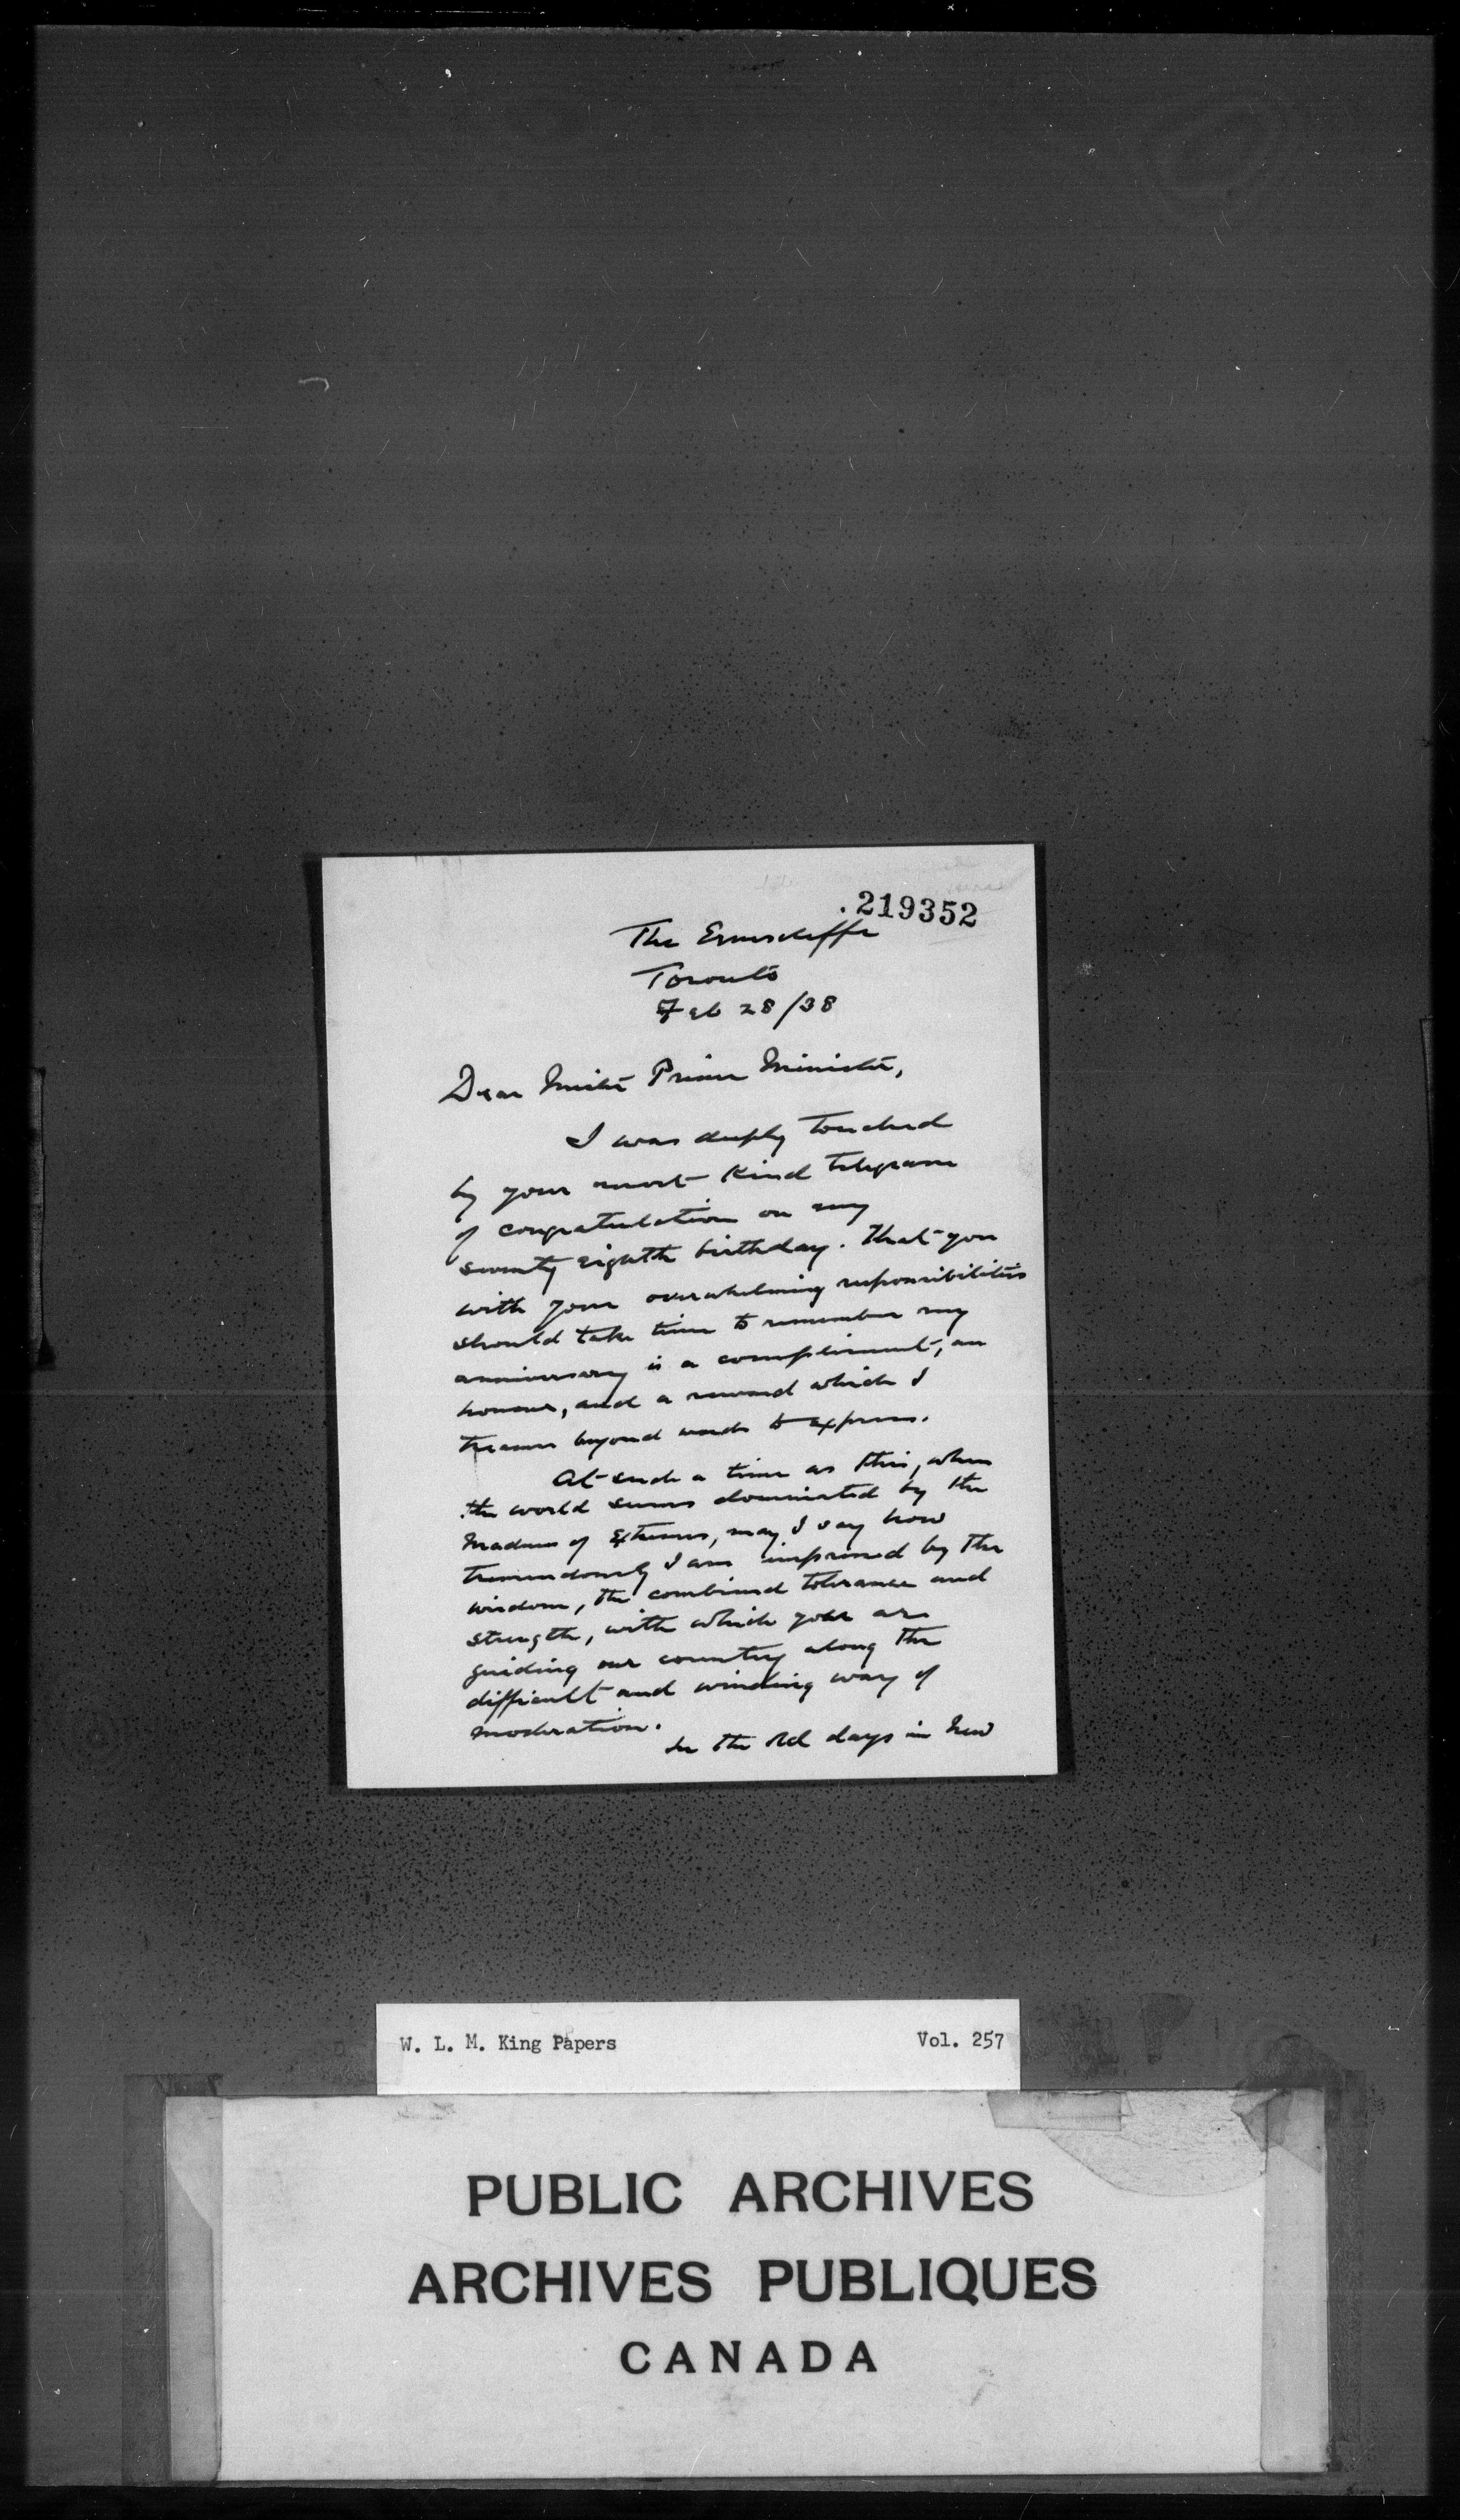 .219352
The Ernescliffe
Toronto
Feb 28/38
Dear Mister Prime Minister,
I was deeply touched
by your most kind telegram
of congratulation on my
seventy eighth birthday. That you
with your overwhelming responsibilities
should take time to remember my
anniversary is a compliment, an
honour, and a reward which I
treasure beyond words to express.
At such a time as this, when
the world seems dominated by the
madness of extremes, may I say how
tremendously I am impressed by the
wisdom, the combined tolerance and
strength, with which you are
guiding our country along the
difficult and winding way of
moderation.
In the old days in New
W. L. M. King Papers
Vol. 257
PUBLIC ARCHIVES
ARCHIVES PUBLIQUES
CANADA